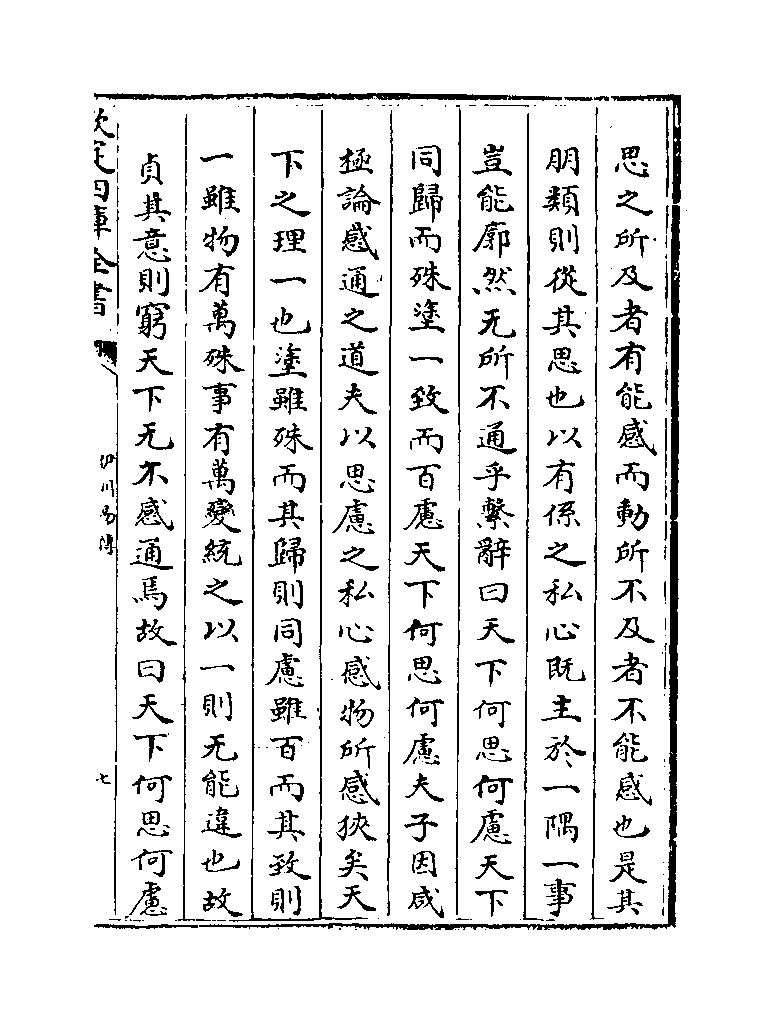 思之所及者有能感而動所不及者不能感也是其
朋類則從其思也以有係之私心既主於一隅一事
豈能廓然无所不通乎繫辭曰天下何思何慮天下
同歸而殊塗一致而百慮天下何思何慮夫子因咸
極論感通之道夫以思慮之私心感物所感狹矣天
下之理一也塗雖殊而其歸則同慮雖百而其致則
一雖物有萬殊事有萬變統之以一則无能違也故
貞其意則窮天下无不感通焉故曰天下何思何慮
欽定四庫全書
伊川易傳
七